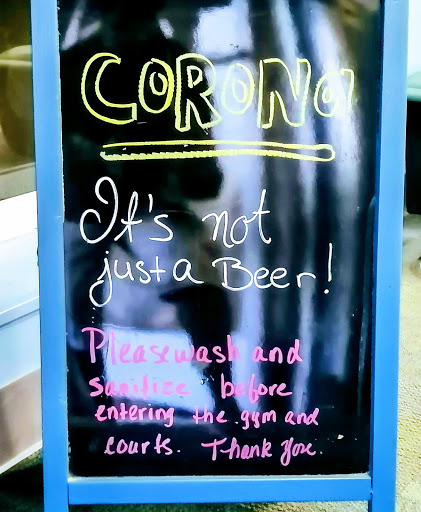 CORONA
It's not
just a Beer!
Please wash and
sanitize before
entering the gym and
courts. Thank You.